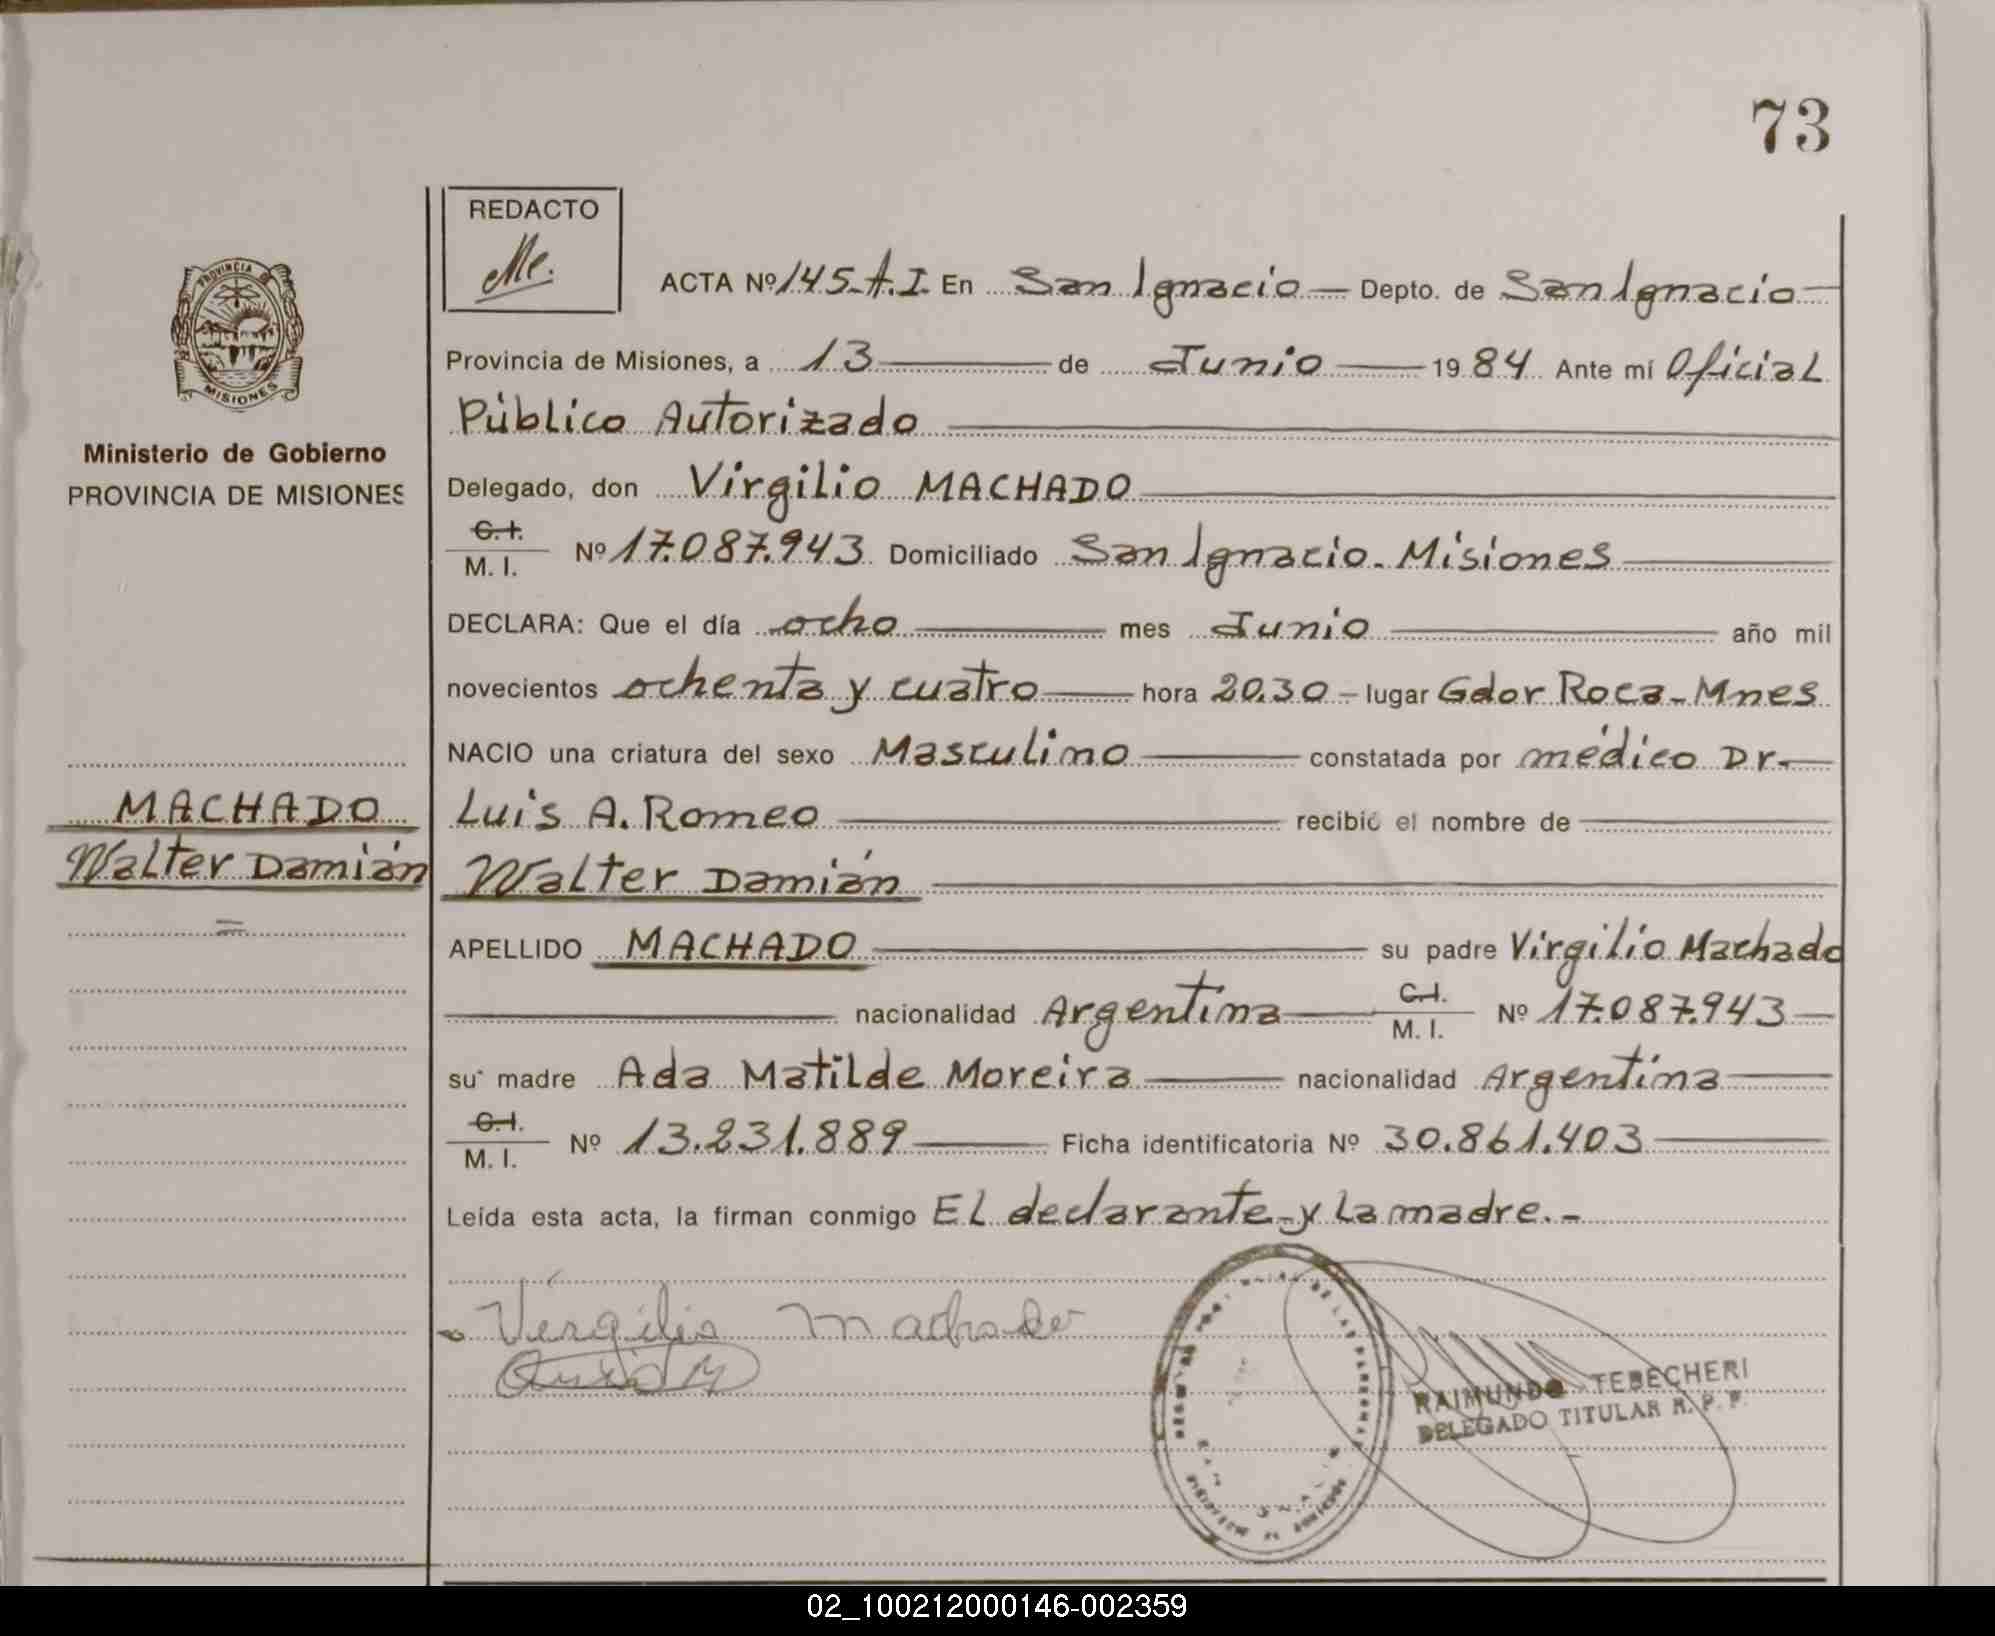 73
REDACTO
Me.
ACTA Nº 145-A.I. En San Ignacio Depto. de San Ignacio
Provincia de Misiones, a 13 de Junio 1984 Ante mí Oficial
Público Autorizado
PROVINCIA DE
MISIONES
Ministerio de Gobierno
PROVINCIA DE MISIONES
Delegado, don Virgilio MACHADO
C.I.
M. I. Nº 17.087.943 Domiciliado San Ignacio. Misiones
DECLARA: Que el día ocho mes Junio año mil
novecientos ochenta y cuatro hora 20.30 - lugar Gdor Roca - Mnes
NACIO una criatura del sexo Masculino constatada por médico Dr.
Luis A. Romeo recibió el nombre de
Walter Damián
MACHADO
Walter Damián
=
APELLIDO MACHADO su padre Virgilio Machado
nacionalidad Argentina C.I.
M. I. Nº 17.087.943
su madre Ada Matilde Moreira nacionalidad Argentina
C.I.
M. I. Nº 13.231.889 Ficha identificatoria Nº 30.861.403
Leída esta acta, la firman conmigo El declarante y la madre. -
Virgilio Machado
RAIMUNDO TEBECHERI
DELEGADO TITULAR R. P. P.
02_100212000146-002359